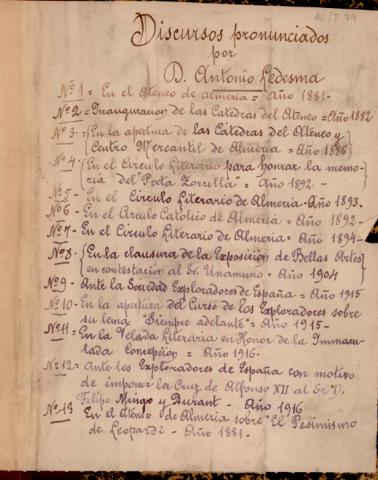 AL/F 79
Discursos pronunciados
por
D. Antonio Ledesma
Nº 1 = En el Ateneo de Almeria = Año 1881-
Nº 2 = Inauguracion de las Catedras del Ateneo = Año 1882
Nº 3- En la apertura de las Catedras del Ateneo y
Centro Mercantil de Almeria = Año 1886
Nº 4- En el Circulo Literario para honrar la memo-
ria del Poeta Zorrilla = Año 1892-
Nº 5- En el Circulo Literario de Almeria-Año 1893-
Nº 6- En el Circulo Catolico de Almeria = Año 1892-
Nº 7- En el Circulo Literario de Almeria = Año 1894-
Nº 8- En la clausura de la Exposicion de Bellas Artes
en contestacion al Sr. Unamuno = Año 1904
Nº 9- Ante la Sociedad Exploradores de España = Año 1915
Nº 10- En la apertura del Curso de los Exploradores sobre
su lema "Siempre adelante" = Año 1915-
Nº 11= En la Velada Literaria en Honor de la Inmacu-
lada Concepcion = Año 1916-
Nº 12= Ante los Exploradores de España con motivo
de imponer la Cruz de Alfonso XII al Sr. D.
Felipe Mingo y Durant- Año 1916
Nº 13 En el Ateneo de Almeria sobre "El Pesimismo
de Leopardi- Año 1881.